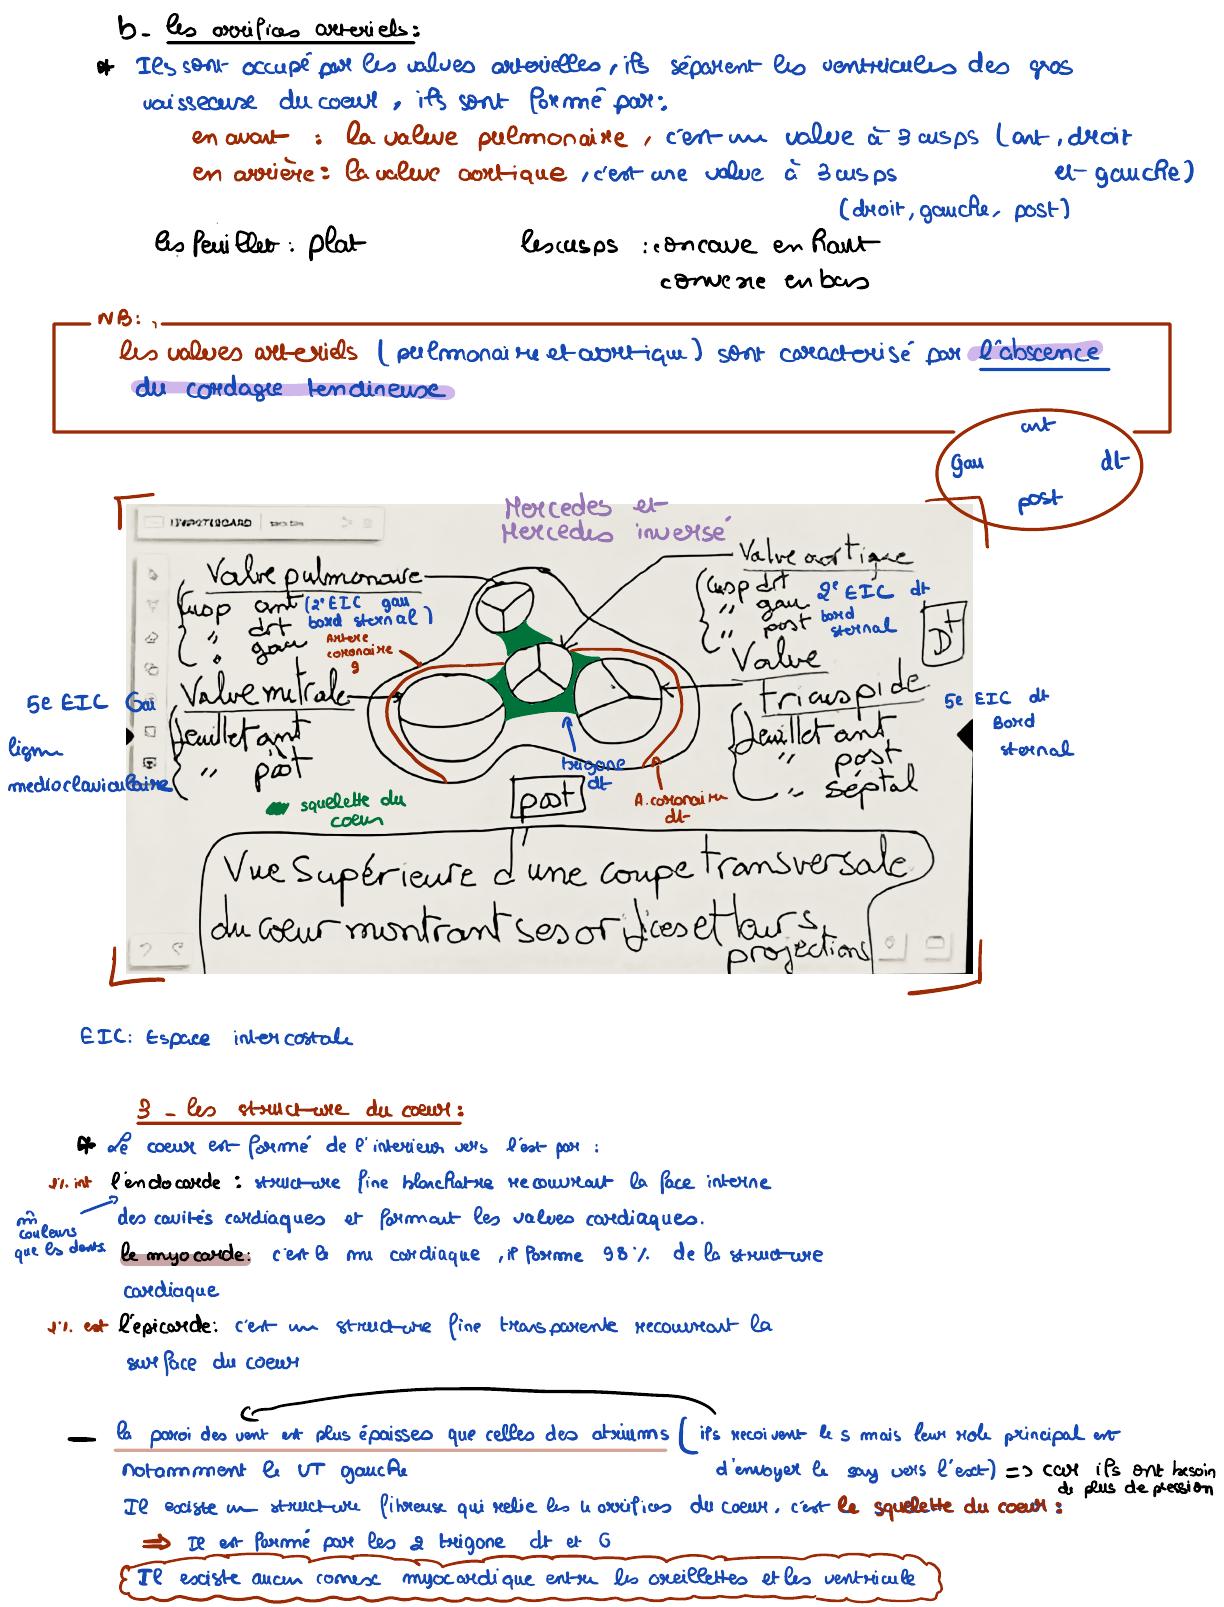 b- les orrifices arteriels:
* Ils sont occupé par les valves arterielles, ils séparent les ventricules des gros
vaisseuse du coeur, ils sont formé par:
en avant : la valeuve pulmonaire, c'est un valve à 3 cusps (ant, droit
et gauche)
en arrière: la valve aortique, c'est une valve à 3 cusps
(droit, gauche, post)
les feuillet: plat
les cusps : concave en haut
convexe en bas
NB:
les valves arteriels (pulmonaire et aortique) sont caracterisé par l'abscence
du cordage tendineuse
ant
Gau dt
post
Mercedes et
Mercedes inversé
Valve pulmonaire
cusp ant (2e EIC gau
" drt bord sternal)
" gau
Artere
coronaire
g
Valve aortique
cusp drt 2e EIC dt
" gau bord
" post sternal
Dt
Valve mitrale
feuillet ant
" post
5e EIC Gau
ligne
medioclaviculaire
Valve
tricuspide
feuillet ant
" post
" séptal
5e EIC dt
Bord
sternal
trigone
dt
A.coronaire
dt
squelette du
coeur
post
Vue Supérieure d'une coupe transversale
du coeur montrant ses orifices et leurs
projections
EIC: Espace intercostale
3 - les structure du coeur:
* Le coeur est formé de l'interieur vers l'ext par :
1%. int l'endocarde : structure fine blanchatre recouvrant la face interne
des cavités cardiaques et formant les valves cardiaques.
m̂ couleurs
que les dents
le myocarde: c'est le mu cardiaque, il forme 98% de la structure
cardiaque
1%. ext l'épicarde: c'est un structure fine transparente recouvrant la
surface du coeur
— la paroi des vent est plus épaisses que celles des atriums (ils recoivent le s mais leur role principal est
notamment le VT gauche
d'envoyer le sang vers l'ext) => car ils ont besoin
de plus de pression
Il existe un structure fibreuse qui relie les 4 orrifices du coeur, c'est le squelette du coeur :
⇒ Il est formé par les 2 trigone dt et G
Il existe aucun connexc myocardique entre les oreillettes et les ventricule